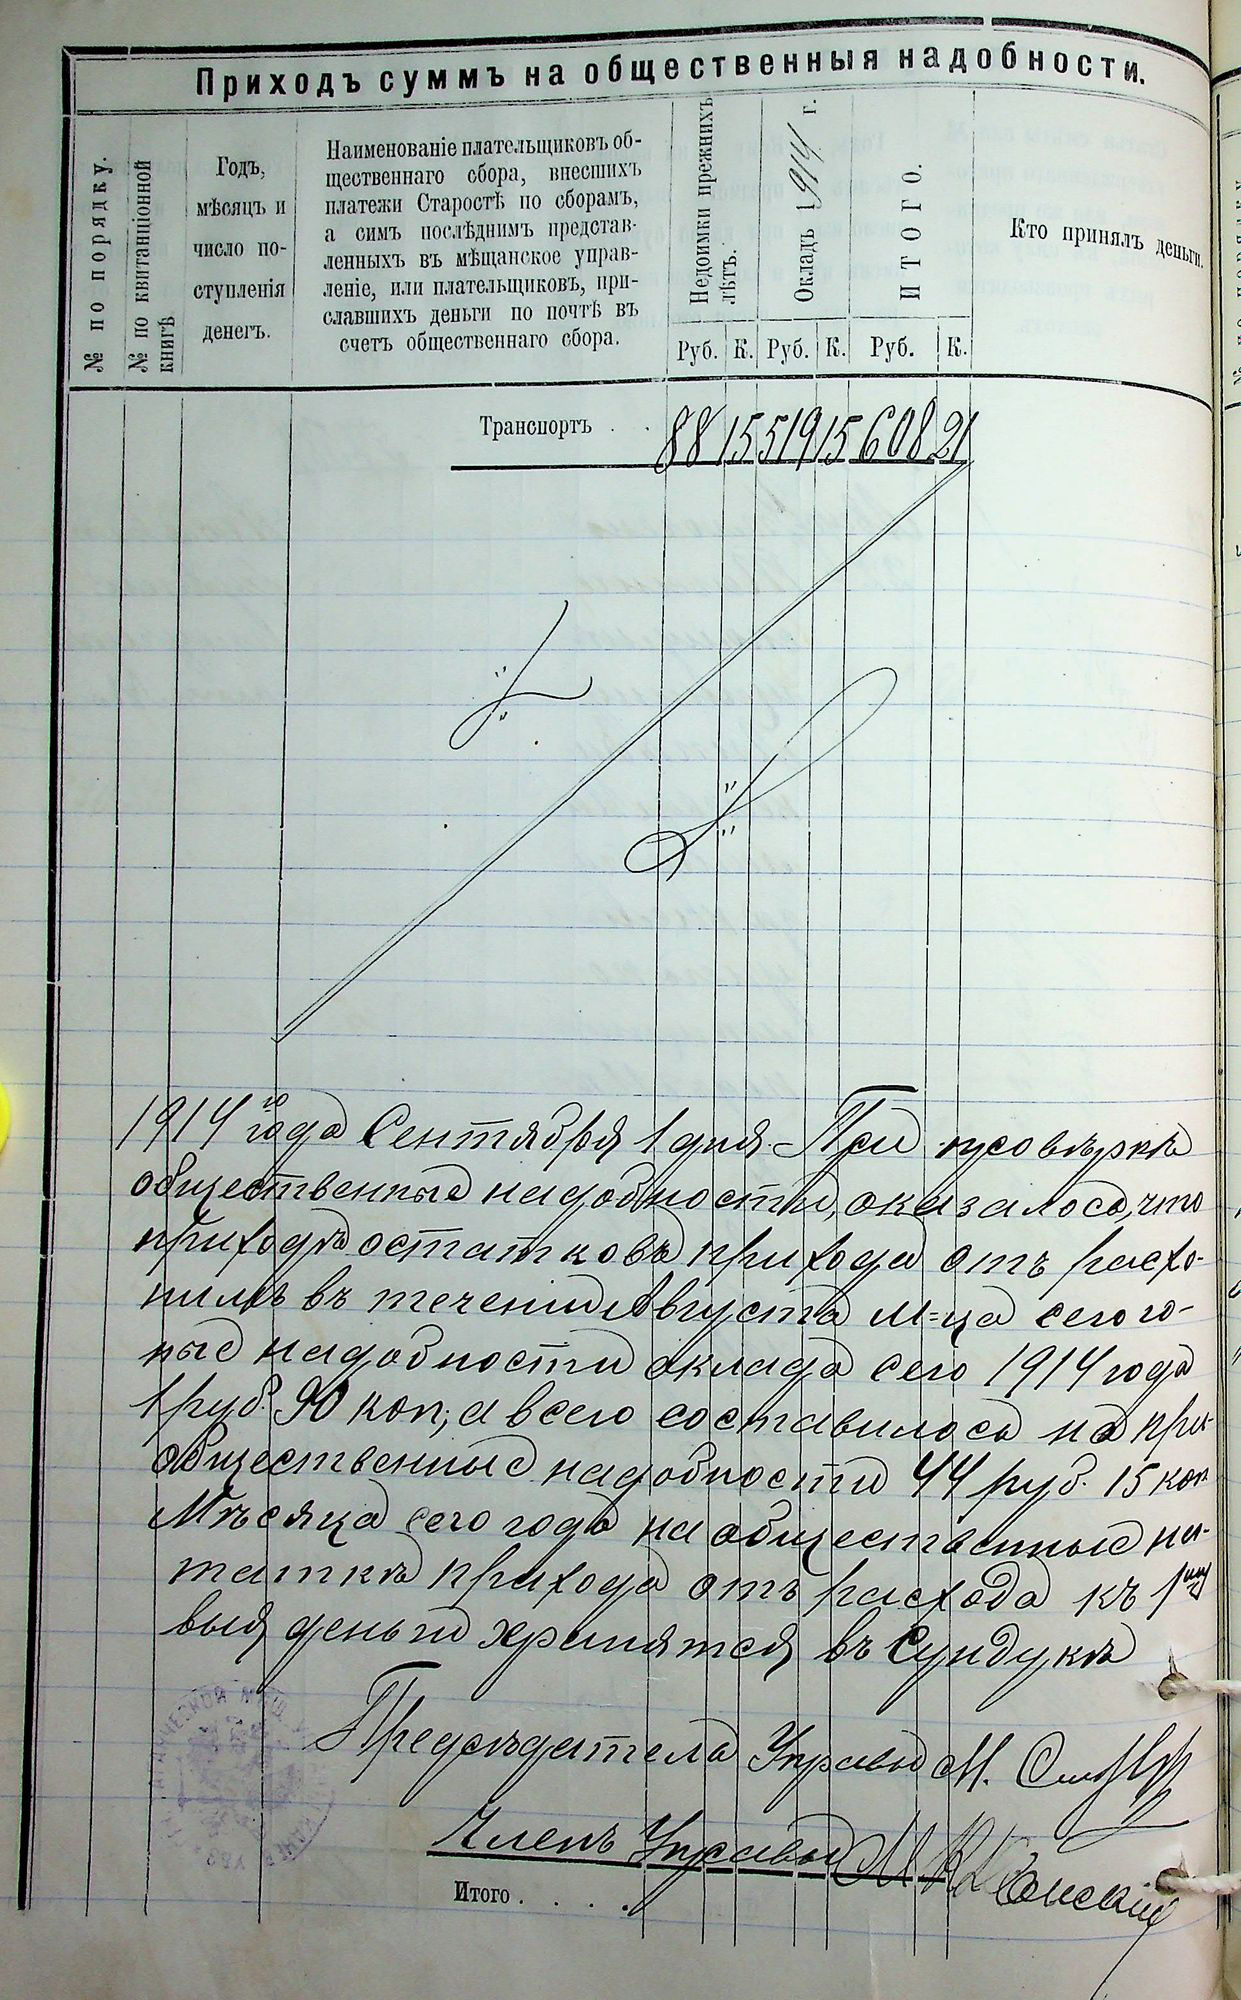 Приходъ суммъ на общественныя надобности.
№ по порядку.
№ по квитанціонной
книгѣ
Годъ,
мѣсяцъ и
число по-
ступленія
денегъ.
Наименованіе плательщиковъ об-
щественнаго сбора, внесшихъ
платежи Старостѣ по сборамъ,
а симъ послѣднимъ представ-
ленныхъ въ мѣщанское управ-
леніе, или плательщиковъ, при-
славшихъ деньги по почтѣ въ
счетъ общественнаго сбора.
Недоимки прежнихъ
лѣтъ.
Окладъ 1914 г.
ИТОГО.
Кто принялъ деньги.
Руб. К. Руб. К. Руб. К.
Транспортъ . . 88 15 519 15 608 21
1914 го года Сентября 1 дня. При провѣркѣ
общественные надобности, оказалось, что
приходѣ остатковъ прихода отъ расхо-
пилъ въ течении Августа М-ца сего го-
ные надобности оклада сего 1914 года
1 руб. 90 коп, а всего составилось на при-
общественные надобности 44 руб. 15 коп
Мѣсяца сего года на общественные на-
таткѣ прихода отъ расхода къ 1
выя деньги хранятся въ Сундукѣ
Предсѣдатель Управы М.
Членъ Управы М
Итого . . . .